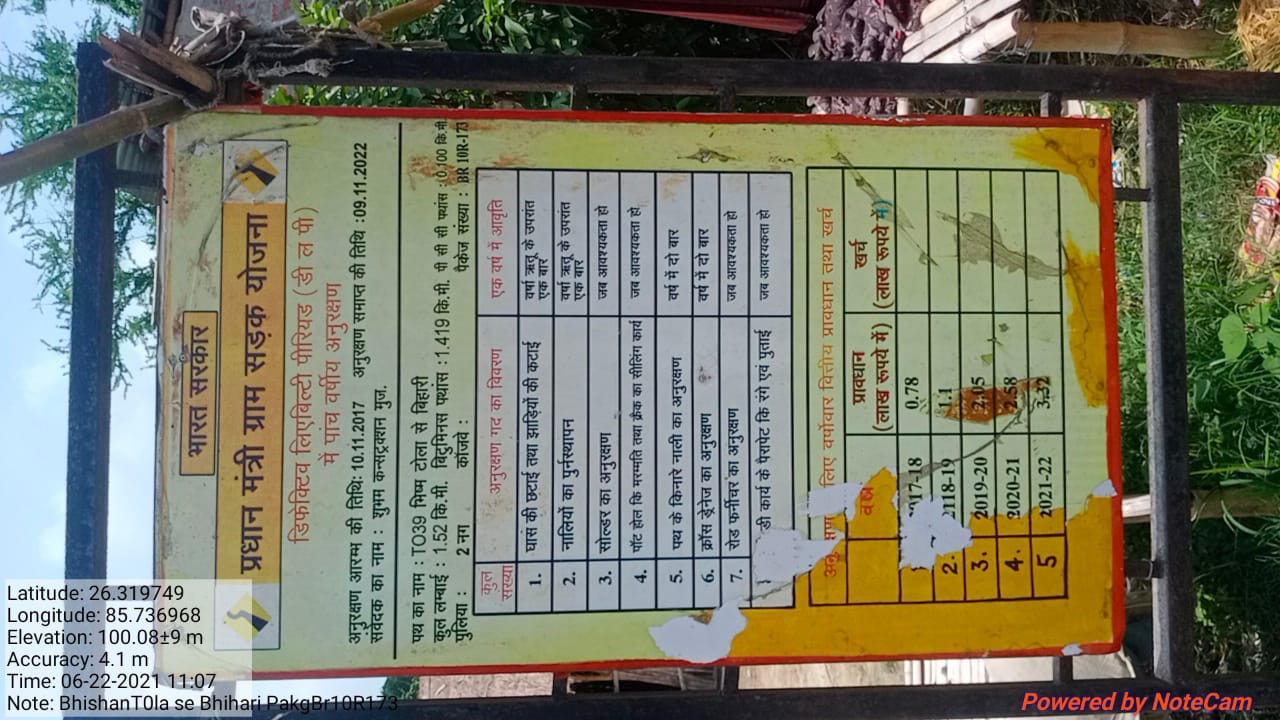 भारत सरकार
प्रधान मंत्री ग्राम सड़क योजना
डिफेक्टिव लिएबिलिटी पीरियड (डी ल पी)
में पांच वर्षीय अनुरक्षण
अनुरक्षण आरम्भ की तिथि: 10.11.2017 अनुरक्षण समाप्त की तिथि :09.11.2022
संवेदक का नाम : शुभम कन्सट्रक्शन मुज.
पथ का नाम : TO39 भिष्म टोला से बिहारी
कुल लम्बाई : 1.52 कि.मी. बिटुमिनस पथांस : 1.419 कि.मी. पी सी सी पथांस : 0.100 कि.मी.
पुलिया : 2 नग कॉजवे : पैकेज संख्या : BR 10R-173
कुल संख्या अनुरक्षण मद का विवरण एक वर्ष में आवृति
1. घास की छटाई तथा झाड़ियों की कटाई वर्षा ऋतू के उपरांत एक बार
2. नालियों का पुर्नस्थापन वर्षा ऋतू के उपरांत एक बार
3. सोल्डर का अनुरक्षण जब आवश्यकता हो
4. पॉट होल कि मरम्मति तथा क्रैक का सीलिंग कार्य जब आवश्यकता हो
5. पथ के किनारे नाली का अनुरक्षण वर्ष में दो बार
6. क्रॉस ड्रेनेज का अनुरक्षण वर्ष में दो बार
7. रोड फर्नीचर का अनुरक्षण जब आवश्यकता हो
डी कार्य के पैरापेट कि रंगे एवं पुताई जब आवश्यकता हो
लिए वर्षावार वित्तीय प्रावधान तथा खर्च
वर्ष प्रावधान (लाख रूपये में) खर्च (लाख रूपये में)
017-18 0.78
2. 2118-19 1.1
3. 2019-20 2.05
4. 2020-21 2.58
5 2021-22 3.32
Latitude: 26.319749
Longitude: 85.736968
Elevation: 100.08±9 m
Accuracy: 4.1 m
Time: 06-22-2021 11:07
Note: BhishanT0la se Bhihari PakgBr10R173
Powered by NoteCam